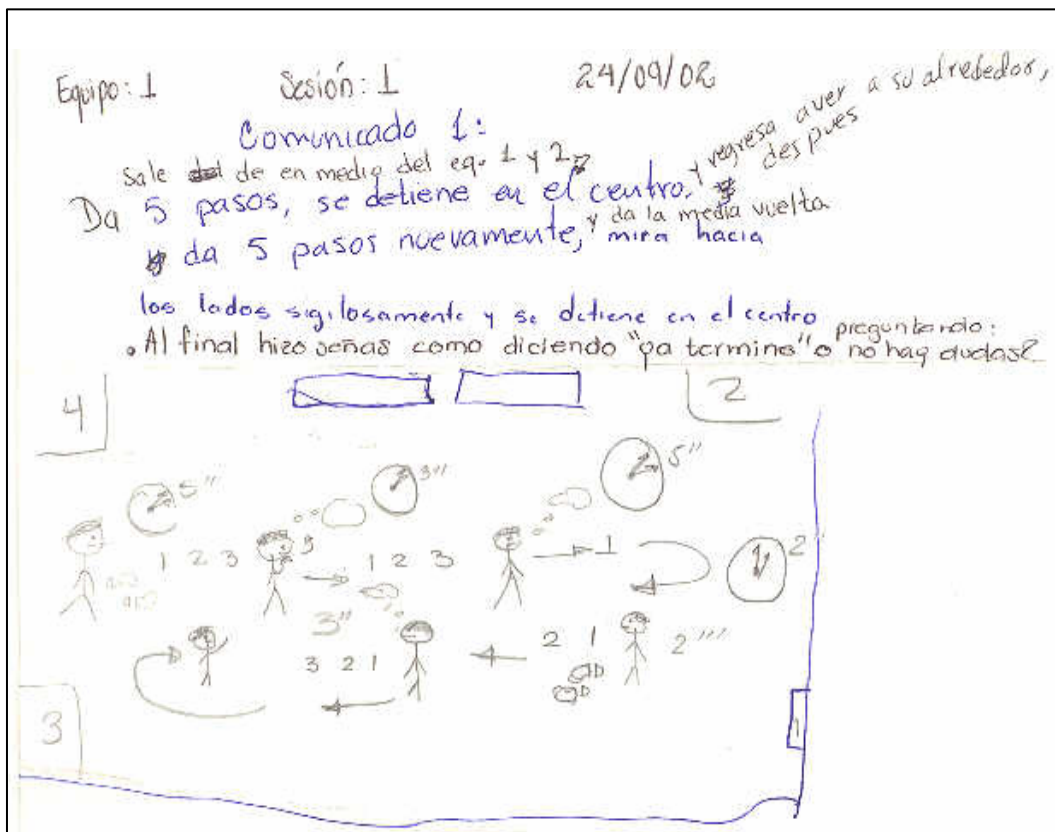 Equipo: 1 Sesión: 1 24/09/02
Comunicado 1:
Sale de en medio del eq. 1 y 2,
Da 5 pasos, se detiene en el centro, y regresa a ver a su alrededor, despues
da 5 pasos nuevamente, y da la media vuelta
mira hacia
los lados sigilosamente y se detiene en el centro
. Al final hizo señas como diciendo "ya termine" o preguntando: no hay dudas?
4 2
5" 3" 5"
1 2 3 1 2 3 1 2
3" 2 1 2"'
3 2 1
3 1